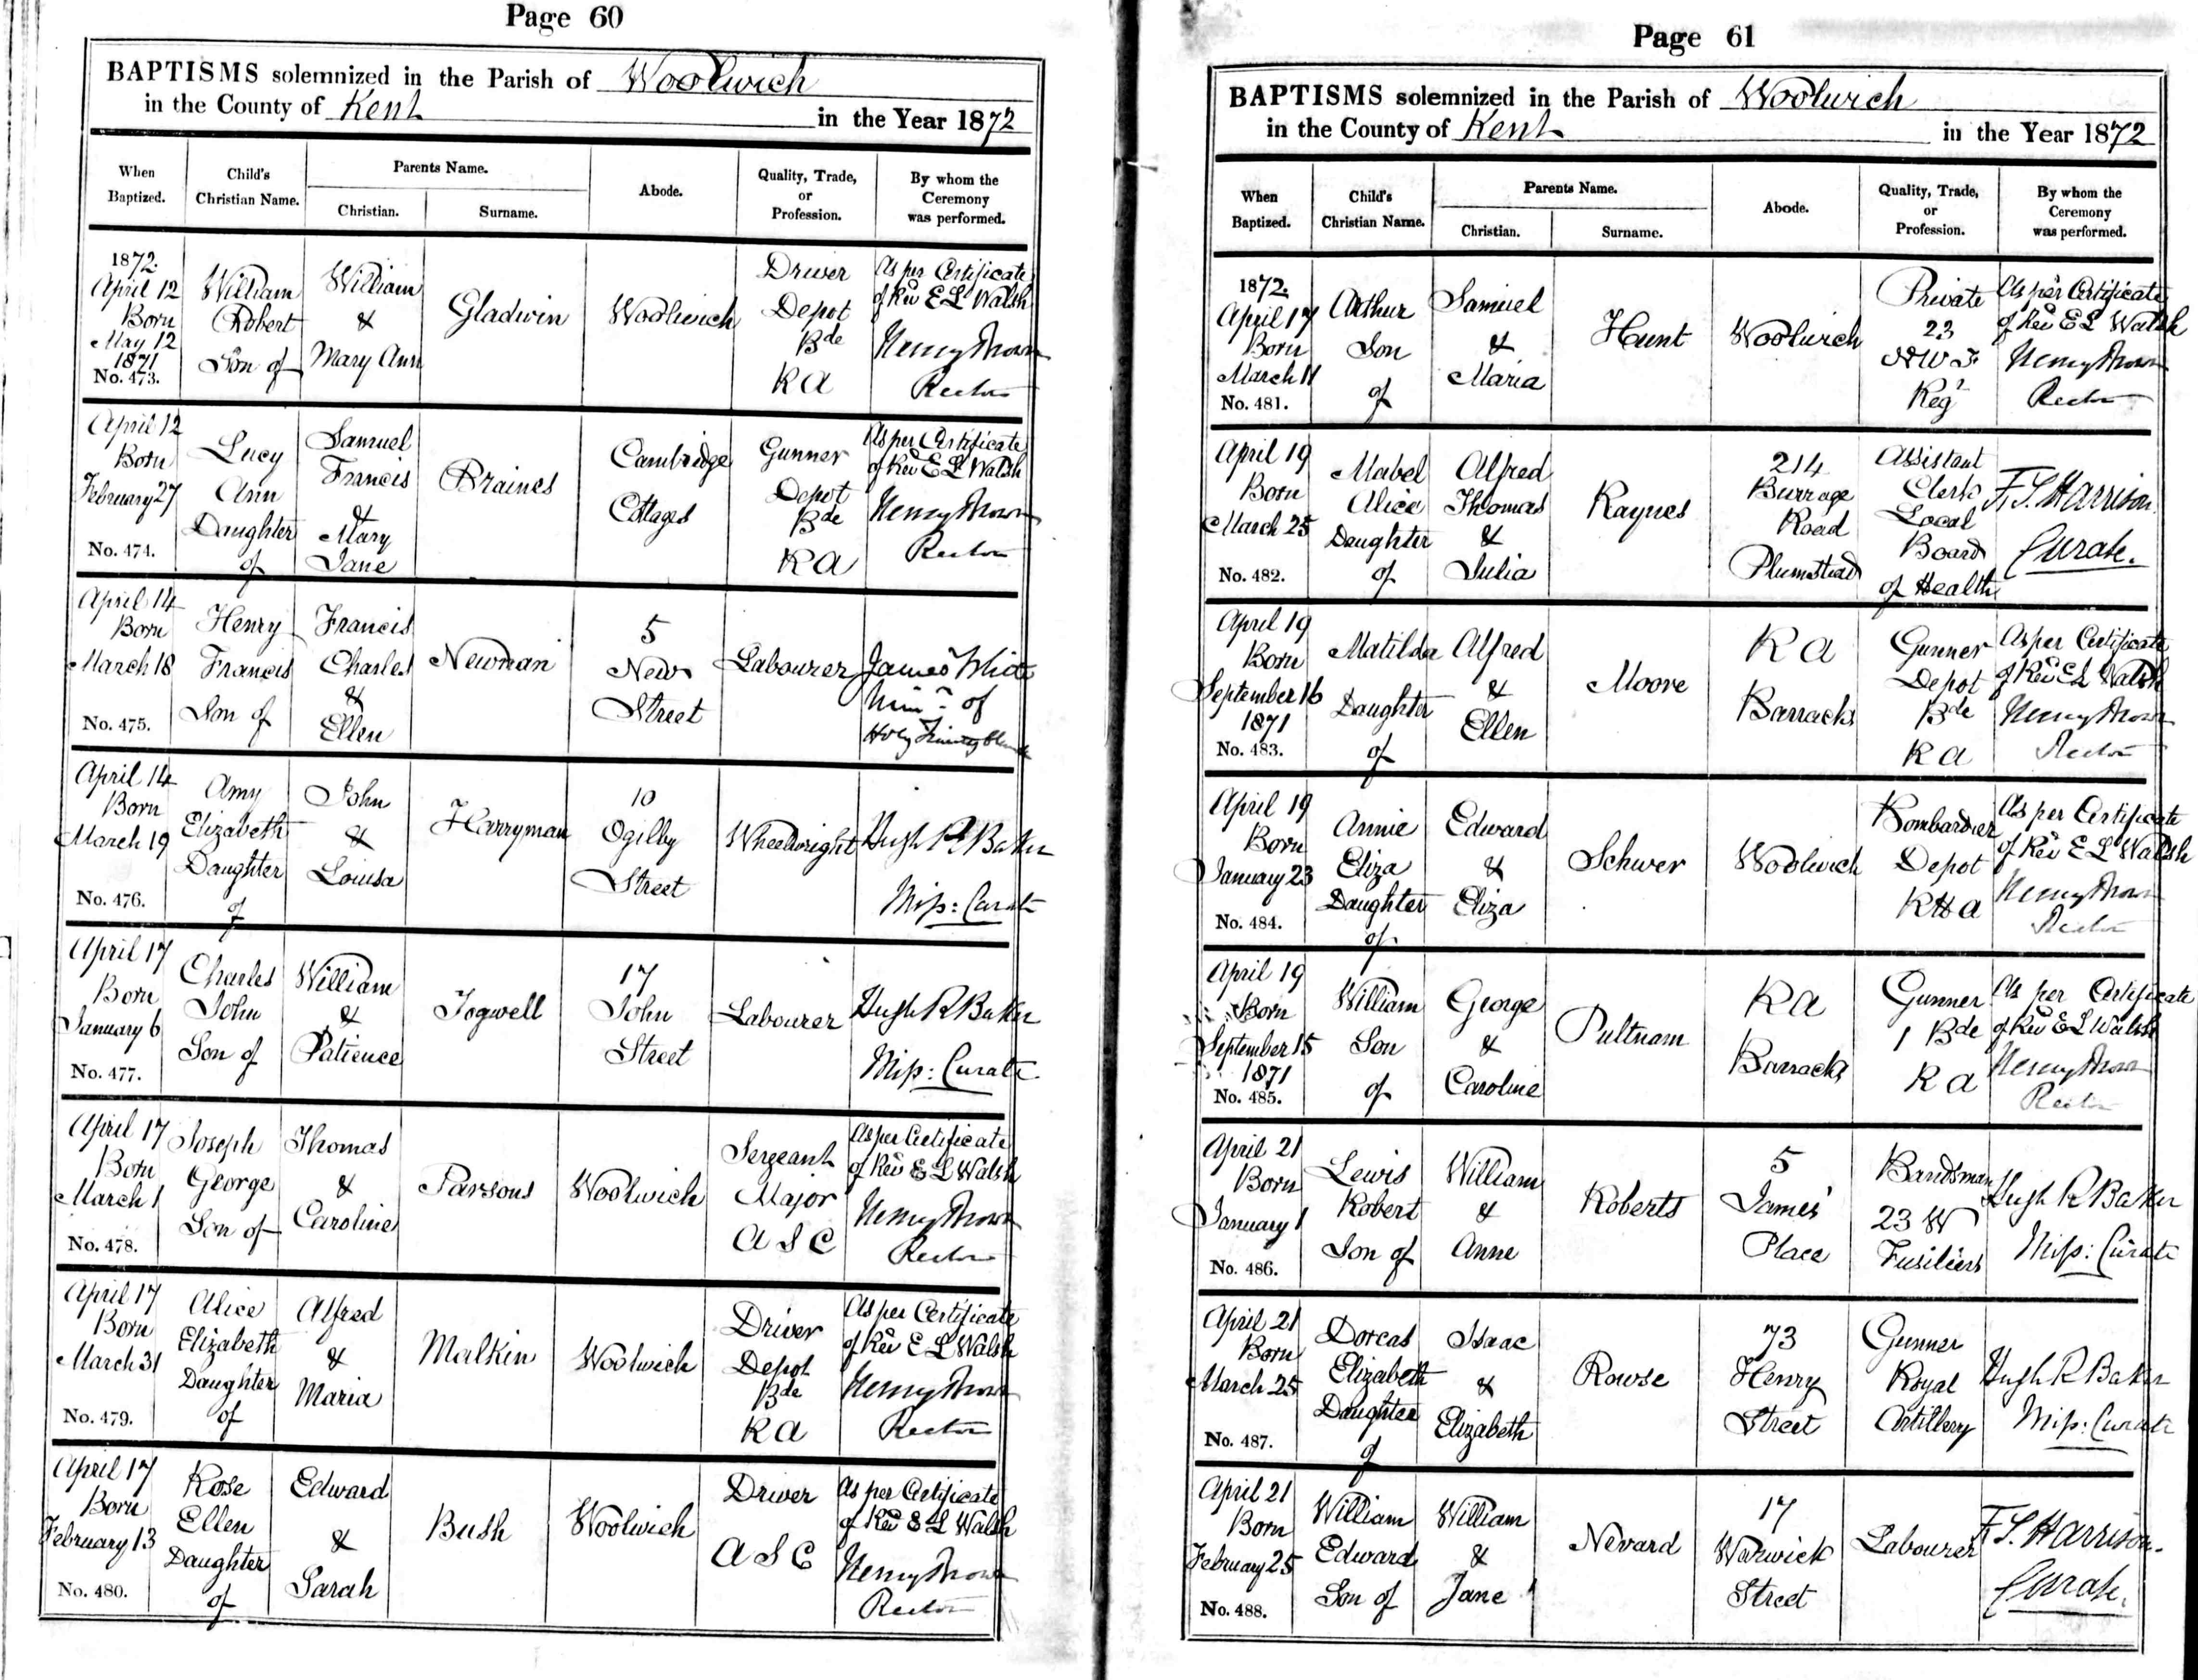 Page 60
BAPTISMS solemnized in the Parish of Woolwich
in the County of Kent in the Year 1872
When Baptized.
Child's Christian Name.
Parents Name.
Christian.
Surname.
Abode.
Quality, Trade, or Profession.
By whom the Ceremony was performed.
1872.
April 12
Born
May 12
1871
No. 473.
William
Robert
Son of
William
&
Mary Ann
Gladwin
Woolwich
Driver
Depot
Bde
R A
As per Certificate
of Rev E L Walsh
Henry Brown
Rector
April 12
Born
February 27
No. 474.
Lucy
Ann
Daughter
of
Samuel
Francis
&
Mary
Jane
Braines
Cambridge
Cottages
Gunner
Depot
Bde
R A
As per Certificate
of Rev E L Walsh
Henry Brown
Rector
April 14
Born
March 18
No. 475.
Henry
Francis
Son of
Francis
Charles
&
Ellen
Newman
5
New
Street
Labourer
James White
Minr of
Holy Trinity
April 14
Born
March 19
No. 476.
Amy
Elizabeth
Daughter
of
John
&
Louisa
Harryman
10
Ogilby
Street
Wheelwright
Hugh R Baker
Miss: Curate
April 17
Born
January 6
No. 477.
Charles
John
Son of
William
&
Patience
Togwell
17
John
Street
Labourer
Hugh R Baker
Miss: Curate
April 17
Born
March 1
No. 478.
Joseph
George
Son of
Thomas
&
Caroline
Parsons
Woolwich
Sergeant
Major
A S C
As per Certificate
of Rev E L Walsh
Henry Brown
Rector
April 17
Born
March 31
No. 479.
Alice
Elizabeth
Daughter
of
Alfred
&
Maria
Malkin
Woolwich
Driver
Depot
Bde
R A
As per Certificate
of Rev E L Walsh
Henry Brown
Rector
April 17
Born
February 13
No. 480.
Rose
Ellen
Daughter
of
Edward
&
Sarah
Bush
Woolwich
Driver
A S C
As per Certificate
of Rev E L Walsh
Henry Brown
Rector
Page 61
BAPTISMS solemnized in the Parish of Woolwich
in the County of Kent in the Year 1872
When Baptized.
Child's Christian Name.
Parents Name.
Christian.
Surname.
Abode.
Quality, Trade, or Profession.
By whom the Ceremony was performed.
1872.
April 17
Born
March 11
No. 481.
Arthur
Son
of
Samuel
&
Maria
Hunt
Woolwich
Private
23
R W F
Reg
As per Certificate
of Rev E L Walsh
Henry Brown
Rector
April 19
Born
March 25
No. 482.
Mabel
Alice
Daughter
of
Alfred
Thomas
&
Julia
Raynes
214
Burrage
Road
Plumstead
Assistant
Clerk
Local
Board
of Health
F. S. Harrison.
Curate.
April 19
Born
September 16
1871
No. 483.
Matilda
Daughter
of
Alfred
&
Ellen
Moore
R A
Barracks
Gunner
Depot
Bde
R A
As per Certificate
of Rev E L Walsh
Henry Brown
Rector
April 19
Born
January 23
No. 484.
Annie
Eliza
Daughter
of
Edward
&
Eliza
Schwer
Woolwich
Bombardier
Depot
R H A
As per Certificate
of Rev E L Walsh
Henry Brown
Rector
April 19
Born
September 15
1871
No. 485.
William
Son
of
George
&
Caroline
Pultnam
R A
Barracks
Gunner
1 Bde
R A
As per Certificate
of Rev E L Walsh
Henry Brown
Rector
April 21
Born
January 1
No. 486.
Lewis
Robert
Son of
William
&
Anne
Roberts
5
James'
Place
Bandsman
23 W
Fusiliers
Hugh R Baker
Miss: Curate
April 21
Born
March 25
No. 487.
Dorcas
Elizabeth
Daughter
of
Isaac
&
Elizabeth
Rowse
73
Henry
Street
Gunner
Royal
Artillery
Hugh R Baker
Miss: Curate
April 21
Born
February 25
No. 488.
William
Edward
Son of
William
&
Jane
Nevard
17
Warwick
Street
Labourer
F. S. Harrison.
Curate.